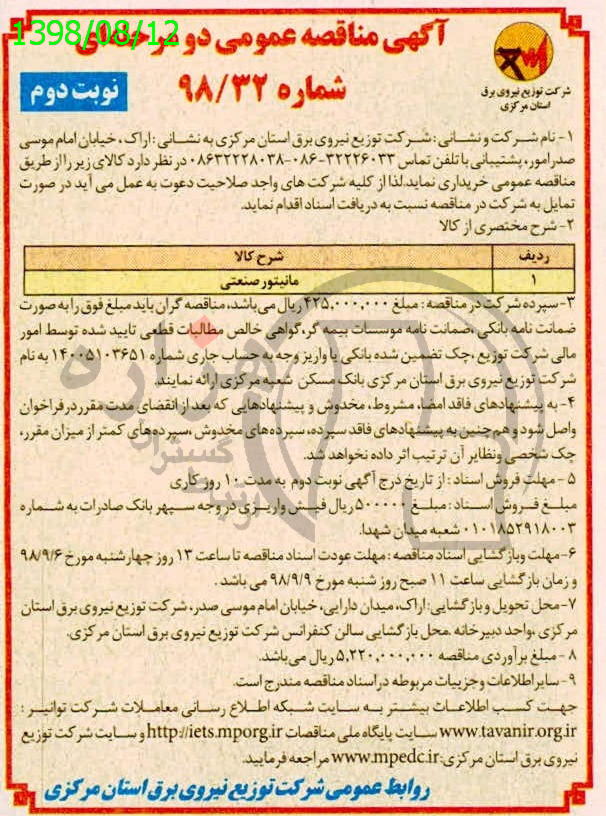 1398/08/12
آگهی مناقصه عمومی دو مرحله‌ای
شماره ۹۸/۳۲
نوبت دوم
شرکت توزیع نیروی برق
استان مرکزی
۱- نام شرکت و نشانی: شرکت توزیع نیروی برق استان مرکزی به نشانی: اراک، خیابان امام موسی
صدر امور، پشتیبانی با تلفن تماس ۳۲۲۲۶۰۳۳-۰۸۶-۰۸۶۳۲۲۲۸۰۳۸ در نظر دارد کالای زیر را از طریق
مناقصه عمومی خریداری نماید. لذا از کلیه شرکت های واجد صلاحیت دعوت به عمل می آید در صورت
تمایل به شرکت در مناقصه نسبت به دریافت اسناد اقدام نماید.
۲- شرح مختصری از کالا
ردیف شرح کالا
۱ مانیتور صنعتی
۳- سپرده شرکت در مناقصه: مبلغ ۴۲۵,۰۰۰,۰۰۰ ریال می‌باشد، مناقصه گران باید مبلغ فوق را به صورت
ضمانت نامه بانکی، ضمانت نامه موسسات بیمه گر، گواهی خالص مطالبات قطعی تایید شده توسط امور
مالی شرکت توزیع، چک تضمین شده بانکی یا واریز وجه به حساب جاری شماره ۱۴۰۰۵۱۰۳۶۵۱ به نام
شرکت توزیع نیروی برق استان مرکزی بانک مسکن شعبه مرکزی ارائه نمایند.
۴- به پیشنهادهای فاقد امضا، مشروط، مخدوش و پیشنهادهایی که بعد از انقضای مدت مقرر در فراخوان
واصل شود و هم چنین به پیشنهادهای فاقد سپرده، سپرده‌های مخدوش، سپرده‌های کمتر از میزان مقرر،
چک شخصی ونظایر آن ترتیب اثر داده نخواهد شد.
۵- مهلت فروش اسناد: از تاریخ درج آگهی نوبت دوم به مدت ۱۰ روز کاری
مبلغ فروش اسناد: مبلغ ۵۰۰۰۰۰ ریال فیش واریزی در وجه سپهر بانک صادرات به شماره
۰۱۰۱۸۵۲۹۱۸۰۰۳ شعبه میدان شهدا.
۶- مهلت وبازگشایی اسناد مناقصه: مهلت عودت اسناد مناقصه تا ساعت ۱۳ روز چهارشنبه مورخ ۹۸/۹/۶
و زمان بازگشایی ساعت ۱۱ صبح روز شنبه مورخ ۹۸/۹/۹ می باشد.
۷- محل تحویل و بازگشایی: اراک، میدان دارایی، خیابان امام موسی صدر، شرکت توزیع نیروی برق استان
مرکزی، واحد دبیرخانه. محل بازگشایی سالن کنفرانس شرکت توزیع نیروی برق استان مرکزی.
۸- مبلغ برآوردی مناقصه ۵,۲۲۰,۰۰۰,۰۰۰ ریال می‌باشد.
۹- سایر اطلاعات وجزییات مربوطه در اسناد مناقصه مندرج است.
جهت کسب اطلاعات بیشتر به سایت شبکه اطلاع رسانی معاملات شرکت توانیر:
www.tavanir.org.ir سایت پایگاه ملی مناقصات http://iets.mporg.ir و سایت شرکت توزیع
نیروی برق استان مرکزی: www.mpedc.ir مراجعه فرمایید.
روابط عمومی شرکت توزیع نیروی برق استان مرکزی